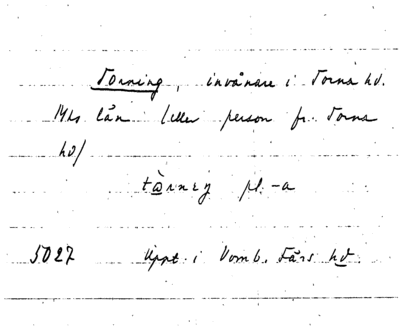 Torning, invånare i Torna hd.
Mhs län (eller person fr. Torna
hd)
tàrnıŋ pl. -a
5027 Uppt. i Vomb, Färs hd.